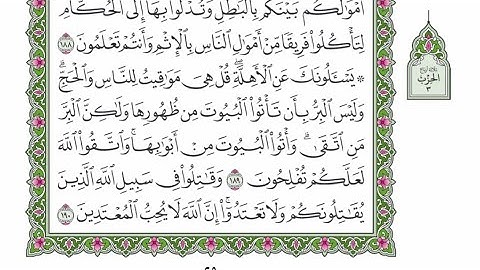 أَمْوَٰلَكُم بَيْنَكُم بِٱلْبَٰطِلِ وَتُدْلُوا۟ بِهَآ إِلَى ٱلْحُكَّامِ
لِتَأْكُلُوا۟ فَرِيقًا مِّنْ أَمْوَٰلِ ٱلنَّاسِ بِٱلْإِثْمِ وَأَنتُمْ تَعْلَمُونَ ١٨٨
۞ يَسْـَٔلُونَكَ عَنِ ٱلْأَهِلَّةِ ۖ قُلْ هِىَ مَوَٰقِيتُ لِلنَّاسِ وَٱلْحَجِّ ۗ
وَلَيْسَ ٱلْبِرُّ بِأَن تَأْتُوا۟ ٱلْبُيُوتَ مِن ظُهُورِهَا وَلَٰكِنَّ ٱلْبِرَّ
مَنِ ٱتَّقَىٰ ۗ وَأْتُوا۟ ٱلْبُيُوتَ مِنْ أَبْوَٰبِهَا ۚ وَٱتَّقُوا۟ ٱللَّهَ
لَعَلَّكُمْ تُفْلِحُونَ ١٨٩ وَقَٰتِلُوا۟ فِى سَبِيلِ ٱللَّهِ ٱلَّذِينَ
يُقَٰتِلُونَكُمْ وَلَا تَعْتَدُوٓا۟ ۚ إِنَّ ٱللَّهَ لَا يُحِبُّ ٱلْمُعْتَدِينَ ١٩٠
الحزب
٣